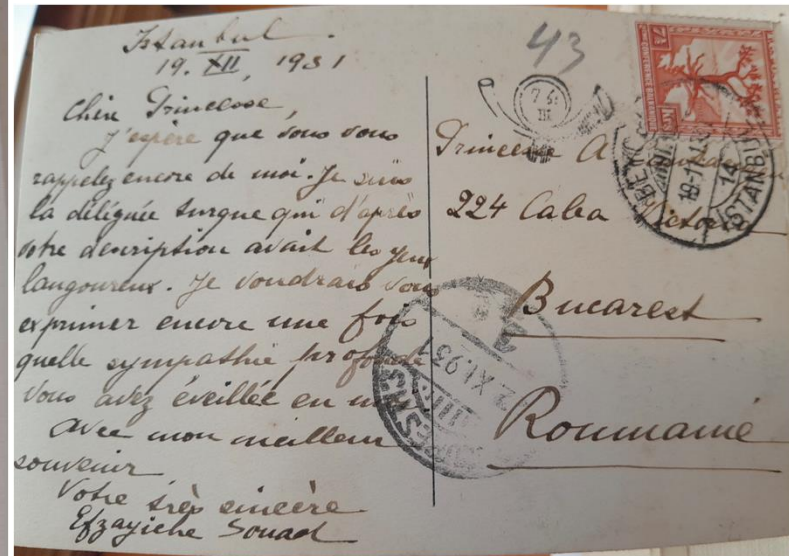 Istanbul.
19. XII, 1931
Chère Princesse,
J'espère que vous vous
rappelez encore de moi. Je suis
la déléguée turque qui d'après
votre description avait les yeux
langoureux. Je voudrais vous
exprimer encore une fois
quelle sympathie profonde
vous avez éveillée en
Avec mon meilleur
souvenir
Votre très sincère
Efzayiche Souad
43
Princesse A
224 Calea Victoriei
Bucarest
Roumanie
CONFERENCE BALKANIQUE
7½
BEYO
ISTANBUL
14
2 XI. 931